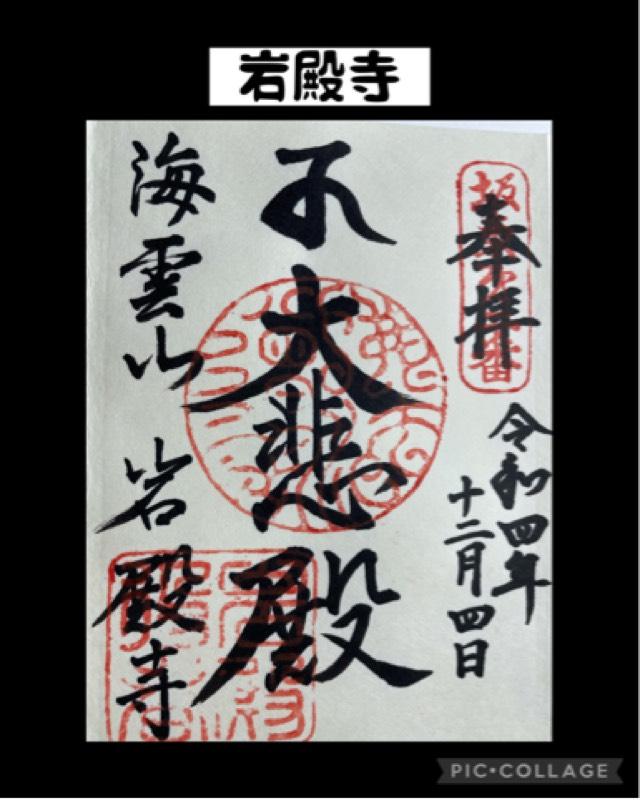 岩殿寺
奉拝
令和四年
十二月四日
大悲殿
海雲山
岩殿寺
PIC•COLLAGE